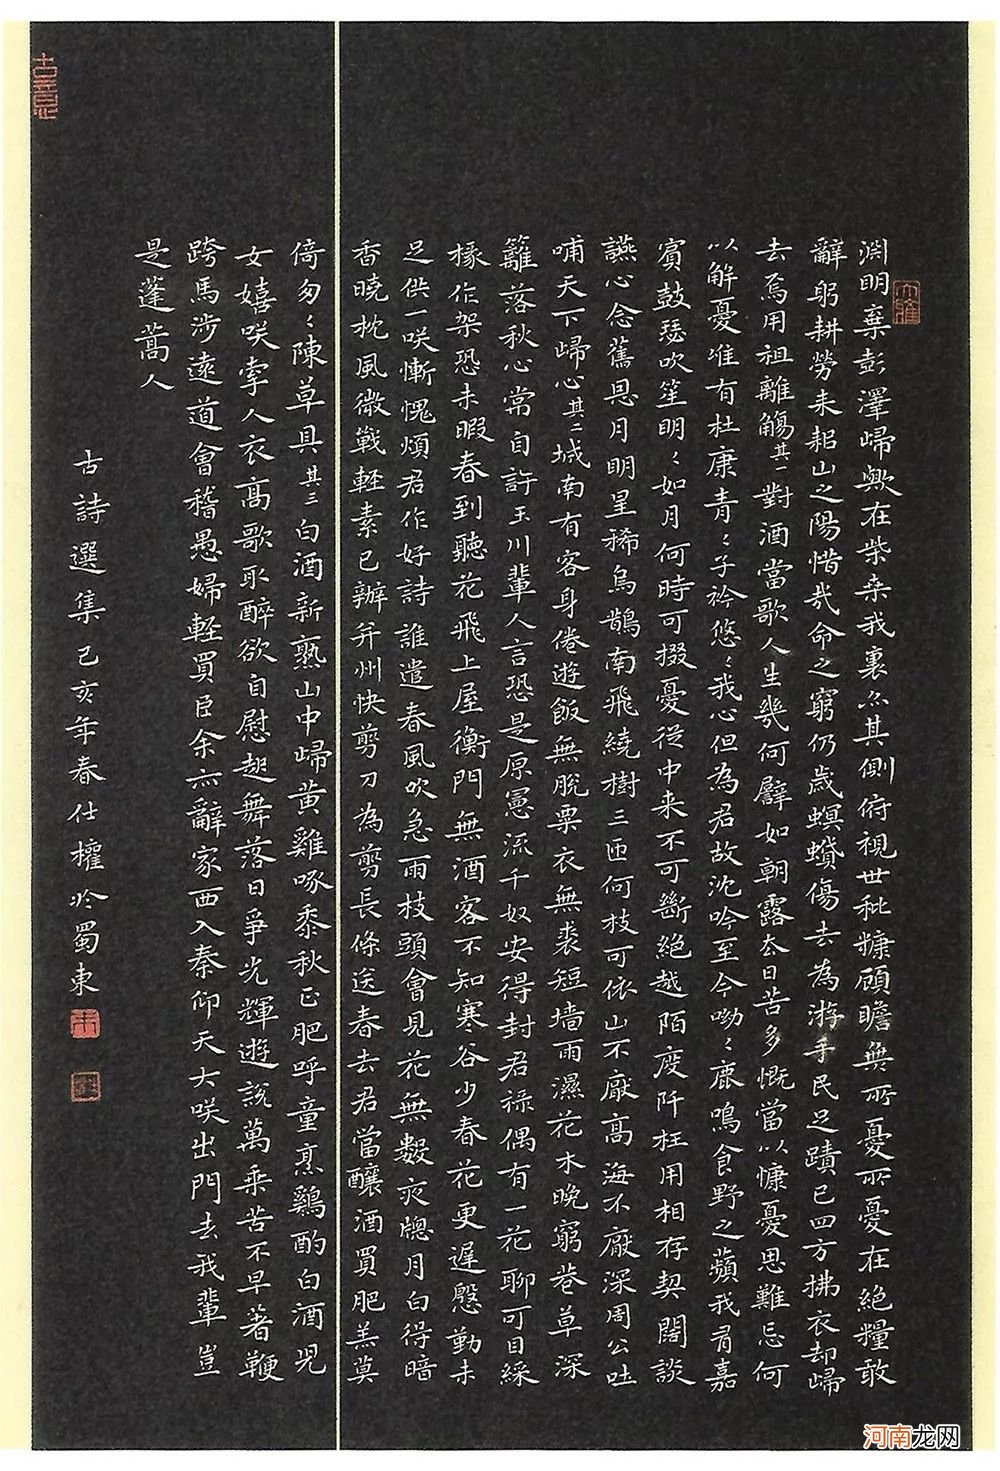 淵明棄彭澤歸歟在柴桑我裏亦其側俯視世秕糠顧瞻無所憂所憂在絕糧敢
辭躬耕勞耒耜山之陽惜哉命之窮仍歲螟螣傷去為游手民足蹟已四方拂衣却歸
去焉用祖離觴其一對酒當歌人生幾何譬如朝露去日苦多慨當以慷憂思難忘何
以解憂唯有杜康青〻子衿悠〻我心但為君故沈吟至今呦〻鹿鳴食野之蘋我有嘉
賓鼓瑟吹笙明〻如月何時可掇憂從中来不可斷絕越陌度阡枉用相存契闊談
讌心念舊恩月明星稀烏鵲南飛繞樹三匝何枝可依山不厭高海不厭深周公吐
哺天下歸心其二城南有客身倦遊飯無脫粟衣無裘短墙雨濕花木晚窮巷草深
籬落秋心常自許玉川輩人言恐是原憲流千奴安得封君祿偶有一花聊可目綵
椽作架恐未暇春到聽花飛上屋衡門無酒客不知寒谷少春花更遲慇勤未
足供一咲慚愧煩君作好詩誰遣春風吹急雨枝頭會見花無數夜牕月白得暗
香曉枕風微戰軽素已辦并州快剪刀為剪長條送春去君當釀酒買肥羔莫
倚匆〻陳草具其三白酒新熟山中歸黃雞啄黍秋正肥呼童烹鷄酌白酒兒
女嬉咲牽人衣高歌取醉欲自慰起舞落日爭光輝遊說萬乘苦不早著鞭
跨馬涉遠道會稽愚婦輕買臣余亦辭家西入秦仰天大咲出門去我輩豈
是蓬蒿人
古詩選集己亥年春仕權於蜀東
大雅
河南龙网